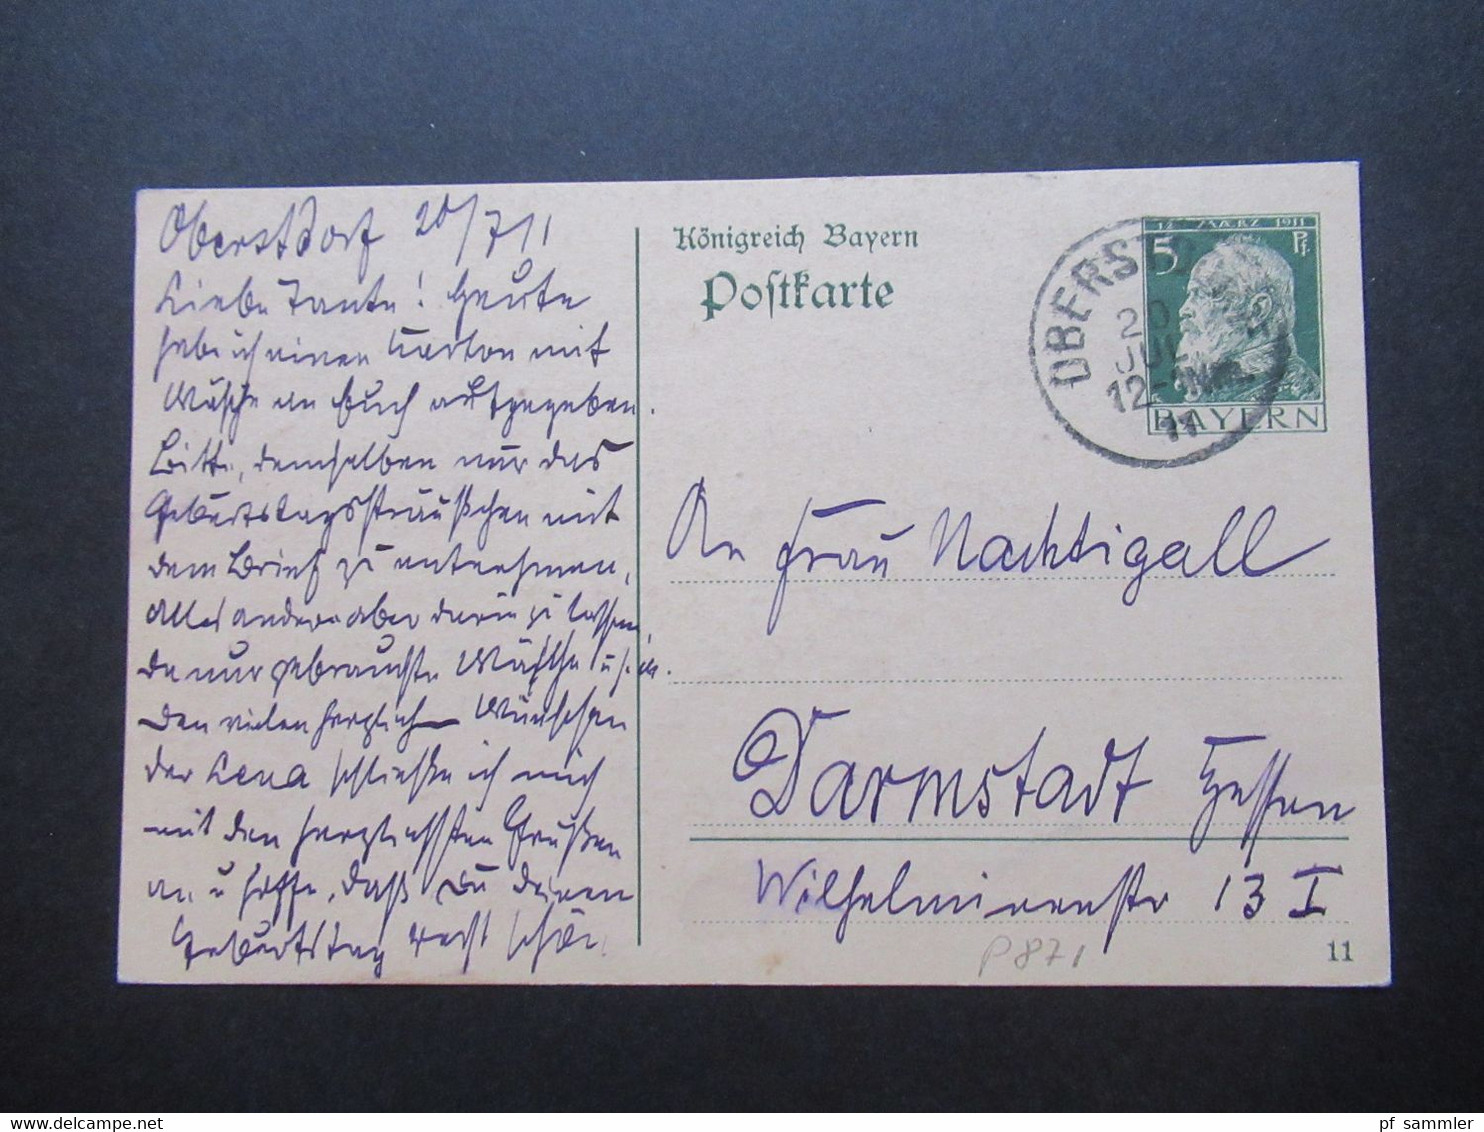 Oberstdorf 20/7 11
Liebe Tante! Heute
habe ich einen Karton mit
Wäsche an Euch aufgegeben.
Bitte, demselben nur das
Geburtstagssträußchen mit
dem Brief zu entnehmen,
alles andere aber darin zu lassen,
da nur gebrauchte Wäsche
Den vielen herzlich Wünschen
der Lena schließe ich mich
mit den herzlichsten Grüßen
an u hoffe, daß Du Deinen
Geburtstag recht schön
Königreich Bayern
Postkarte
12. MÄRZ 1911
5 Pf.
BAYERN
OBERSTD
20
JUL
12-1 Nm.
11
An Frau Nachtigall
Darmstadt Hessen
Wilhelminenstr 13 I
P 87 I
11
pf sammler
www.delcampe.net